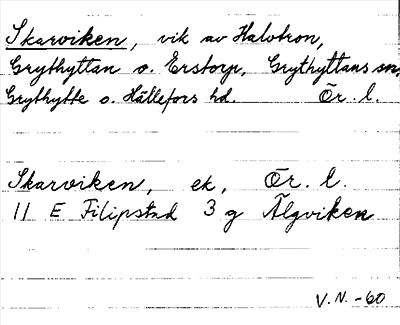 Skarviken, vik av Halvtron,
Grythyttan o. Erstorp, Grythyttans sn,
Grythytte o. Hällefors hd. Ör. l.
Skarviken, ek, Ör. l.
11 E Filipstad 3 g Älgviken
V.N.-60